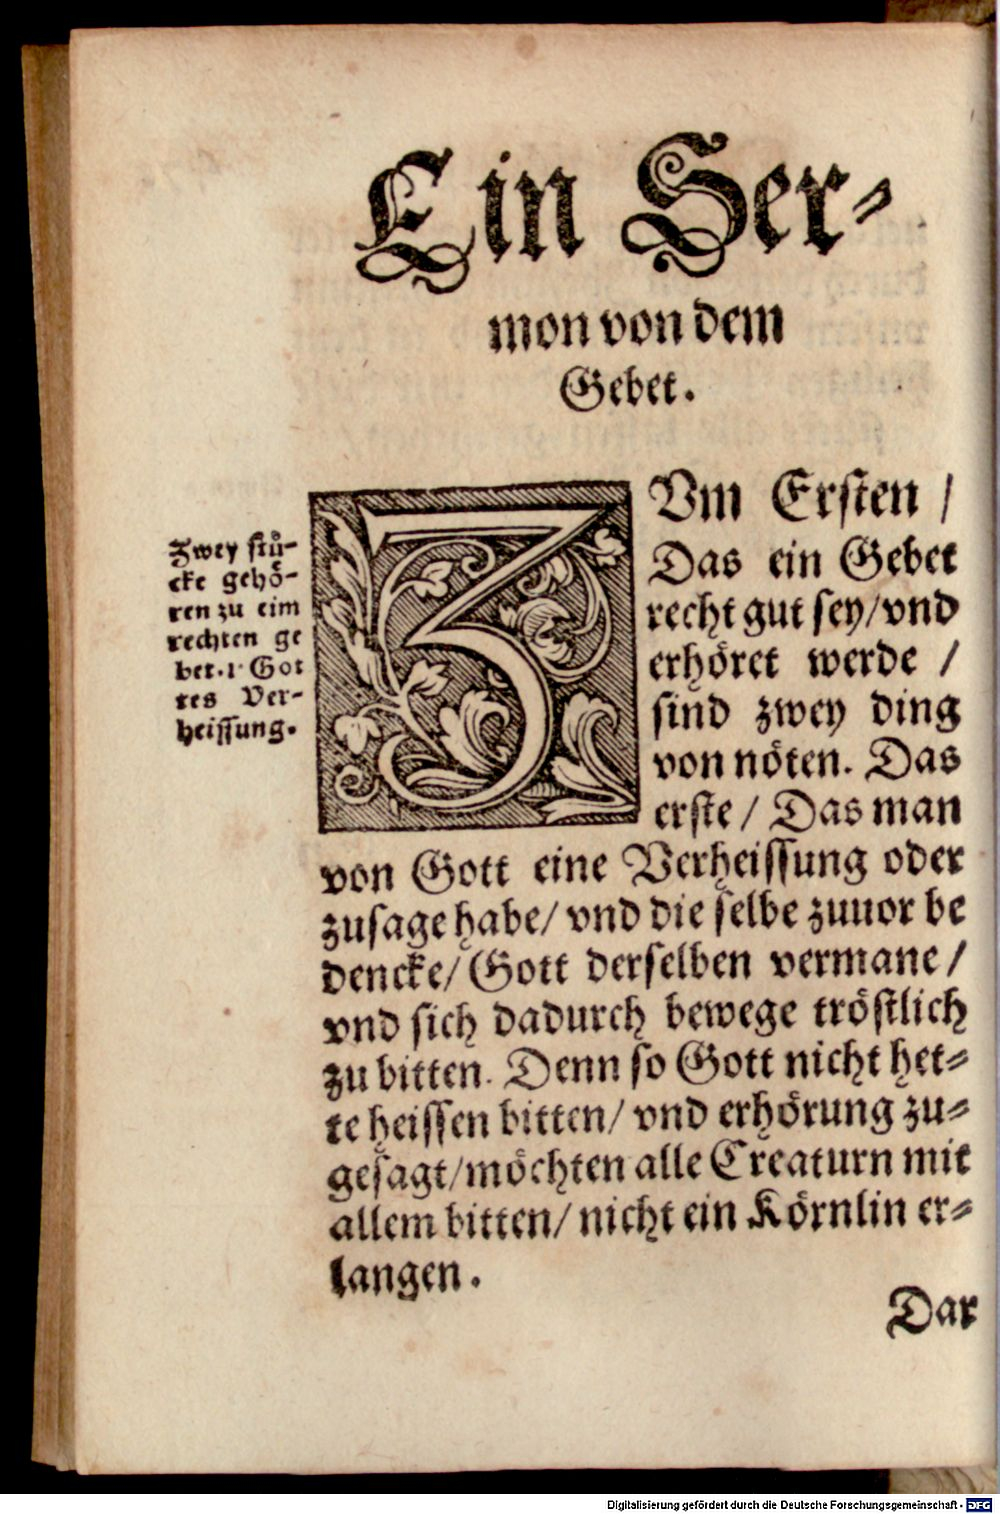 Ein Ser-
mon von dem
Gebet.
Zwey stuͤ-
cke gehoͤ-
ren zu eim
rechten ge
bet. 1 Got
tes Ver-
heissung.
ZVm Ersten /
Das ein Gebet
recht gut sey/vnd
erhöret werde /
sind zwey ding
von nöten. Das
erste / Das man
von Gott eine Verheissung oder
zusage habe/ vnd die selbe zuuor be
dencke/ Gott derselben vermane /
vnd sich dadurch bewege tröstlich
zu bitten. Denn so Gott nicht het-
te heissen bitten/ vnd erhörung zu-
gesagt/möchten alle Creaturn mit
allem bitten/ nicht ein Körnlin er-
langen.
Dar
Digitalisierung gefördert durch die Deutsche Forschungsgemeinschaft - DFG